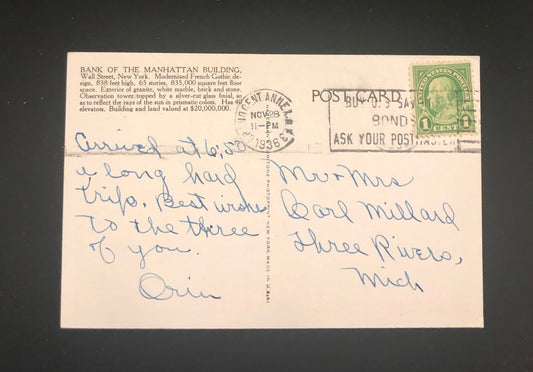 BANK OF THE MANHATTAN BUILDING,
Wall Street, New York. Modernized French Gothic de-
sign, 838 feet high, 65 stories, 835,000 square feet floor
space. Exterior of granite, white marble, brick and stone.
Observation tower topped by a silver-cut glass finial, so
as to reflect the rays of the sun in prismatic colors. Has 40
elevators. Building and land valued at $20,000,000.
POST CARD
UNITED STATES POSTAGE
1 CENT 1
GRAND CENT. ANNEX N.Y.
NOV 28
11-PM
1936
BUY U.S. SAV
BONDS
ASK YOUR POSTMASTER
Arrived at 6,50
a long hard
trip. Best wishes
to the three
of you.
Orin
Mr + Mrs
Carl Millard
Three Rivers,
Mich
MADE IN U.S.A.